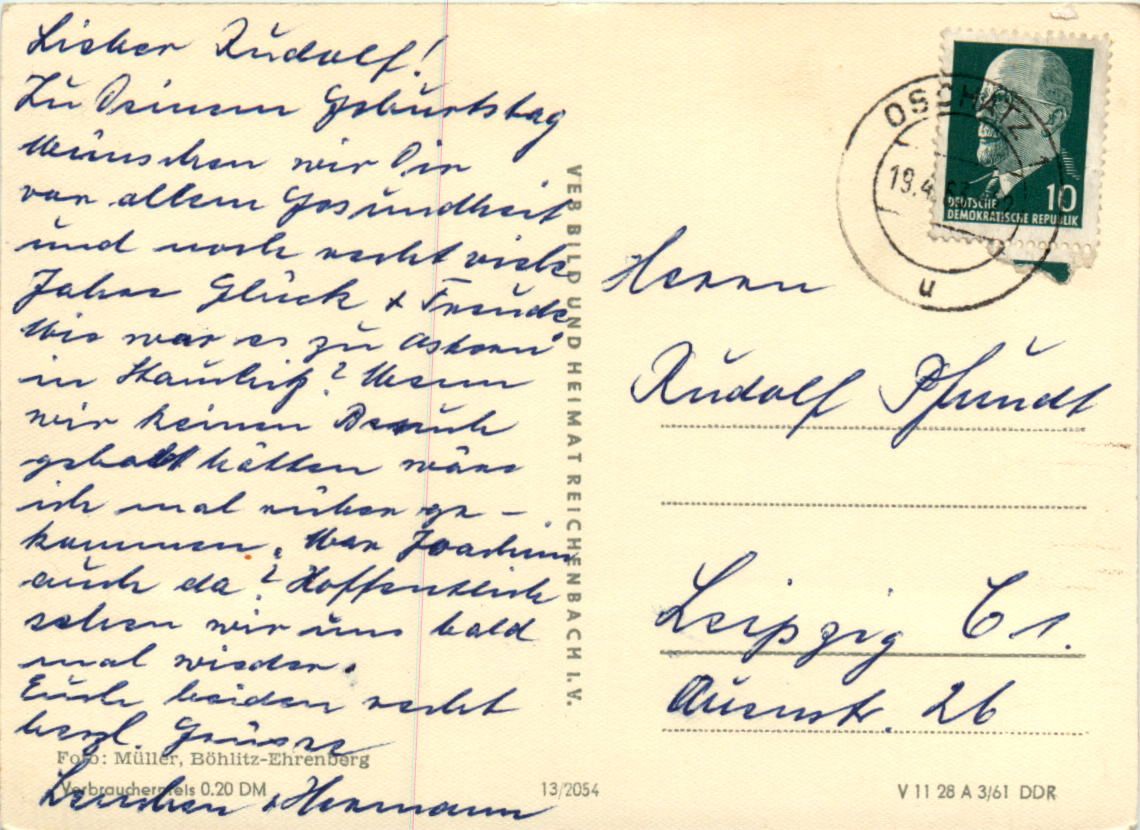 Lieber Rudolf!
Zu Deinem Geburtstag
wünschen wir Dir
vor allem Gesundheit
und noch recht viele
Jahre Glück + Freude
Wie war es zu Ostern
in ? Wenn
wir keinen Besuch
gehabt hätten wäre
ich mal rüber ge-
kommen. War Joachim
auch da? Hoffentlich
sehen wir uns bald
mal wieder.
Euch beiden recht
herzl. Grüsse
Lenchen + Hermann
Foto: Müller, Böhlitz-Ehrenberg
Verbraucherpreis 0.20 DM
13/2054
VEB BILD UND HEIMAT REICHENBACH I. V.
OSCHATZ
19.4.
u
10
DEUTSCHE
DEMOKRATISCHE REPUBLIK
Herrn
Rudolf Pfundt
Leipzig C 1.
26
V 11 28 A 3/61 DDR